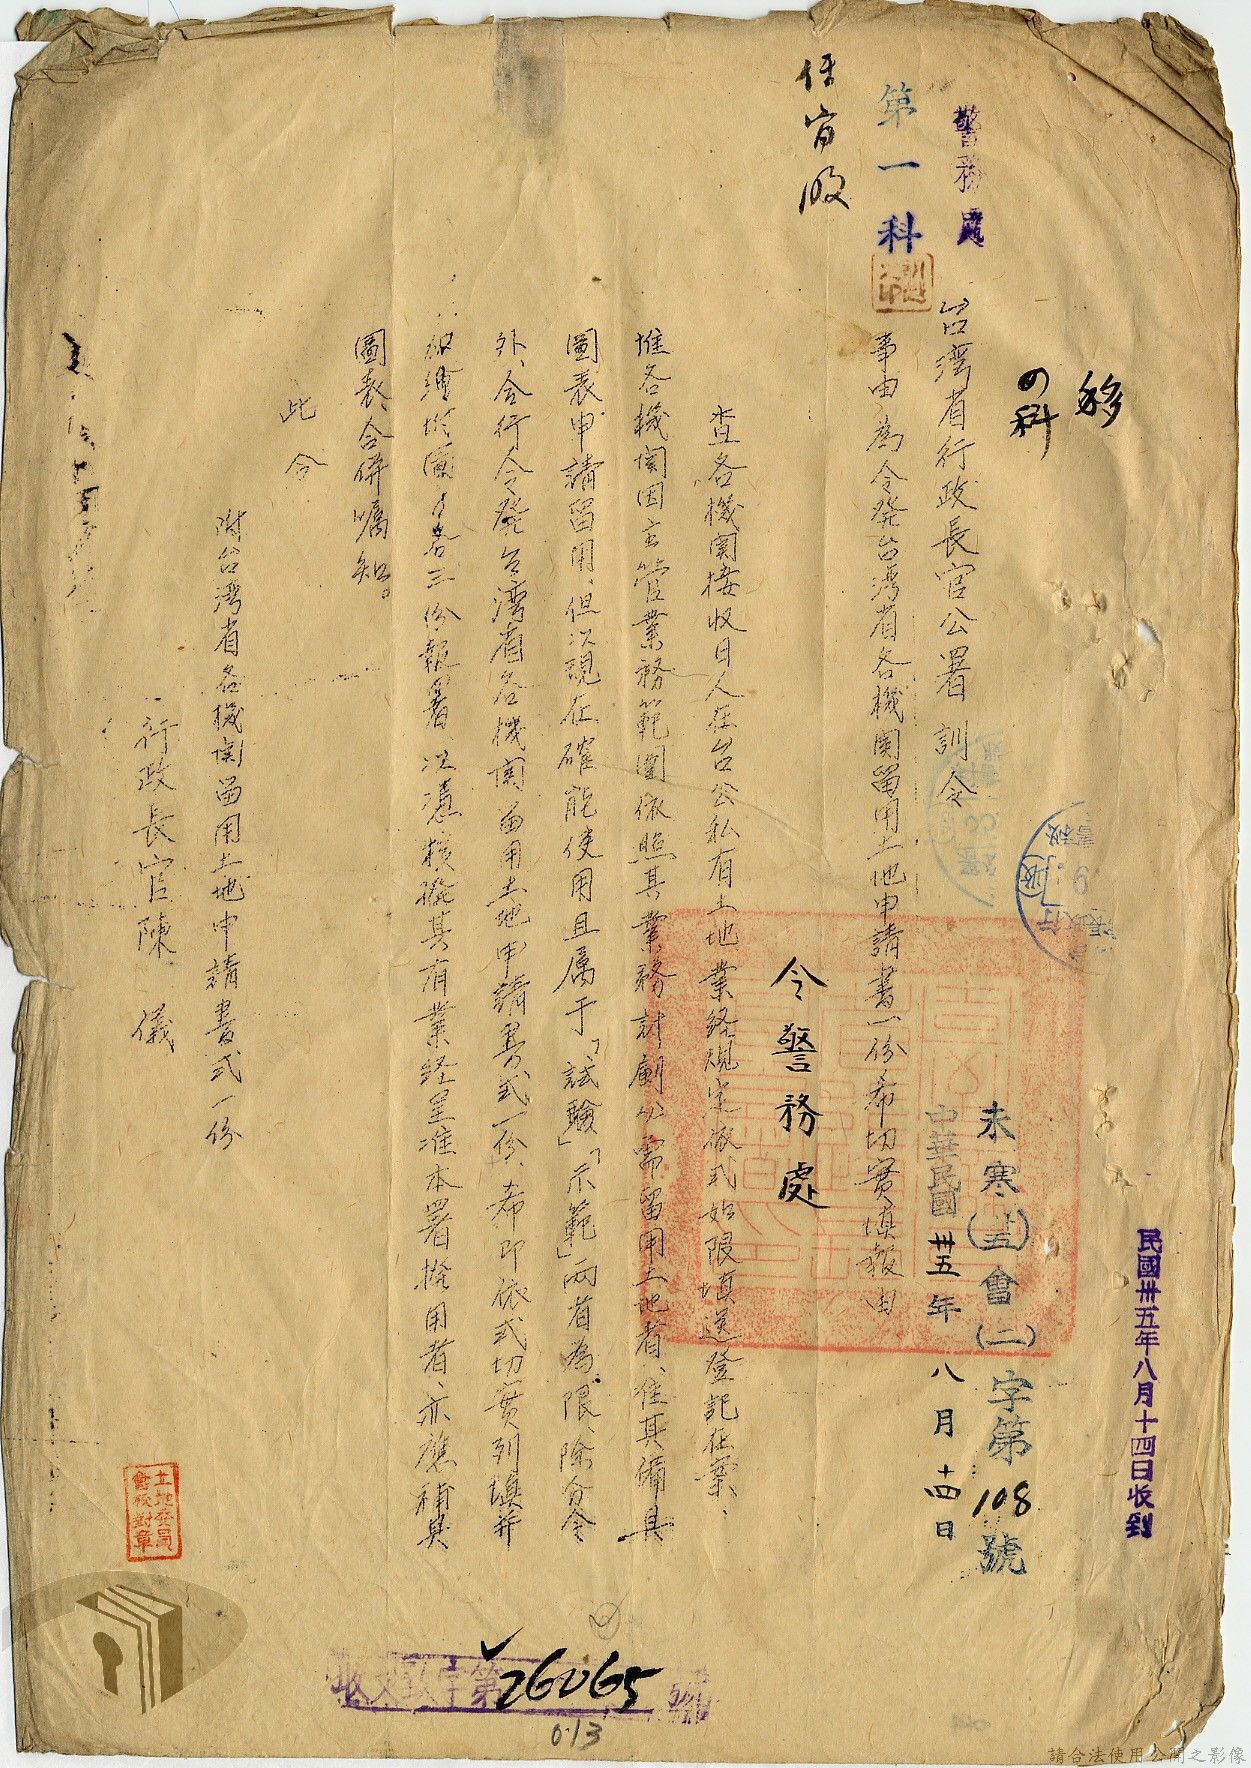 民國卅五年八月十四日收到
移
四科
未寒(卅五)會(二)字第108號
中華民國卅五年八月十四日
警務處
台湾省行政長官公署 訓令
第一科
事由 為令發台湾省各機関留用土地申請書一份希切實填報由
任肯收
令警務處
查各機関接收日人在台公私有土地業経規定依式如限填送登記在案、
惟各機関因主管業務範圍依照其業務計劃必需留用土地者、准其備具
圖表申請留用、但以現在確能使用且属于「試驗」「示範」兩者為限、除分令
外、合行令發台湾省各機関留用土地申請書式一份、希即依式切實列填并
附圖各三份報署、以憑核撥其有業経呈准本署撥用者、亦應補具
圖表、合併嘱知。
此令
附台湾省各機関留用土地申請書式一份
行政長官陳 儀
土地委員會校對章
收文 字第26065號
013
請合法使用公開之影像